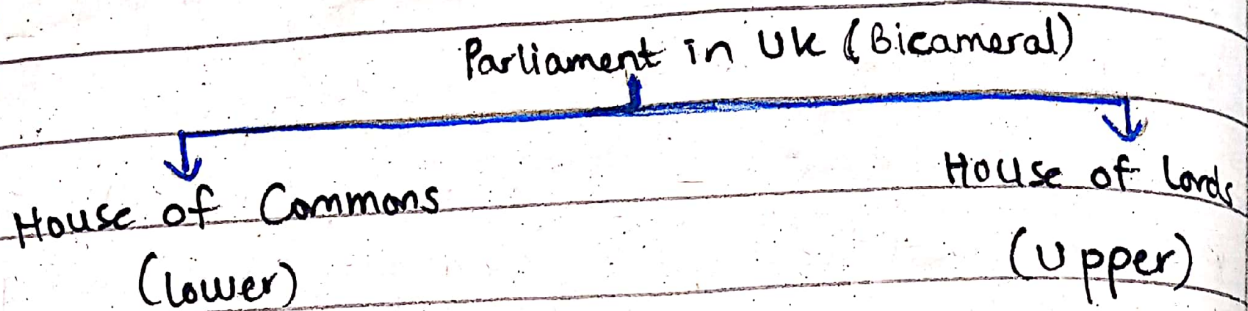 Parliament in Uk (Bicameral)
House of Commons
House of Lords
(lower)
(Upper)